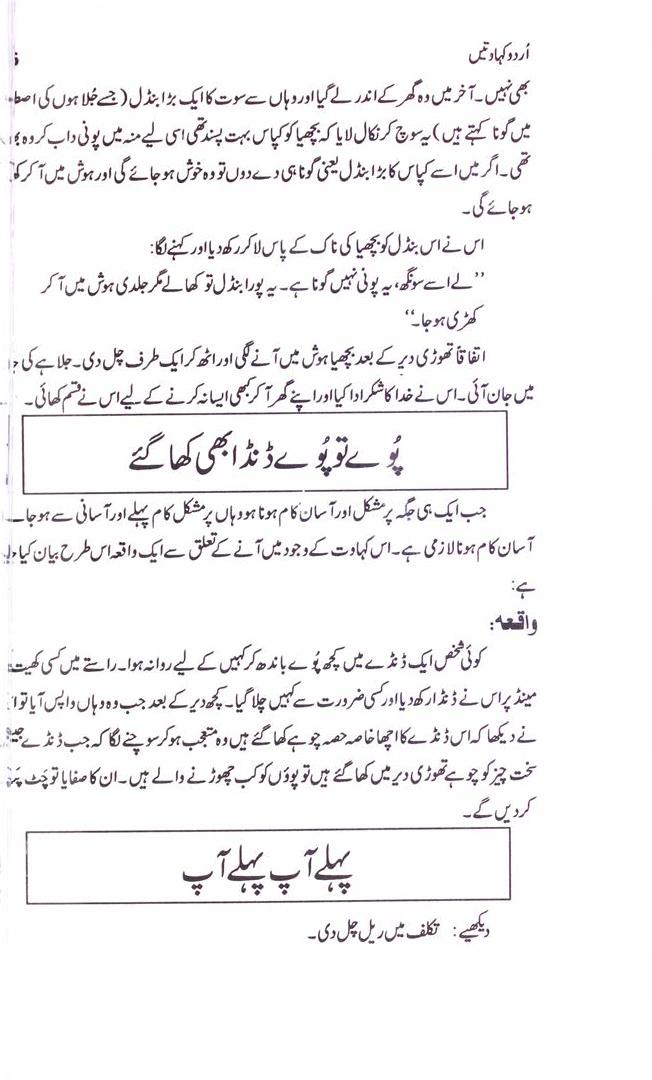 اُردو کہاوتیں
بھی نہیں۔ آخر میں وہ گھر کے اندر لے گیا اور وہاں سے سوت کا ایک بڑا بنڈل (جسے جُلاہوں کی
میں گونا کہتے ہیں) یہ سوچ کر نکال لایا کہ بچھیا کو کپاس بہت پسند تھی اسی لیے منہ میں پونی داب کر وہ
تھی۔ اگر میں اسے کپاس کا بڑا بنڈل یعنی گونا ہی دے دوں تو وہ خوش ہو جائے گی اور ہوش میں آ کر
ہو جائے گی۔
اس نے اس بنڈل کو بچھیا کی ناک کے پاس لا کر رکھ دیا اور کہنے لگا:
’’لے اسے سونگھ، یہ پونی نہیں گونا ہے۔ یہ پورا بنڈل تو کھا لے مگر جلدی ہوش میں آ کر
کھڑی ہو جا۔‘‘
اتفاقاً تھوڑی دیر کے بعد بچھیا ہوش میں آنے لگی اور اٹھ کر ایک طرف چل دی۔ جلاہے کی
میں جان آئی۔ اس نے خدا کا شکر ادا کیا اور اپنے گھر آ کر کبھی ایسا نہ کرنے کے لیے اس نے قسم کھائی۔
پُوے تو پُوے ڈنڈا بھی کھا گئے
جب ایک ہی جگہ پر مشکل اور آسان کام ہونا ہو وہاں پر مشکل کام پہلے اور آسانی سے ہو
آسان کام ہونا لازمی ہے۔ اس کہاوت کے وجود میں آنے کے تعلق سے ایک واقعہ اس طرح بیان کیا
ہے:
واقعہ:
کوئی شخص ایک ڈنڈے میں کچھ پُوے باندھ کر کہیں کے لیے روانہ ہوا۔ راستے میں کسی کھیت
مینڈ پر اس نے ڈنڈا رکھ دیا اور کسی ضرورت سے کہیں چلا گیا۔ کچھ دیر کے بعد جب وہ وہاں واپس آیا تو
نے دیکھا کہ اس ڈنڈے کا اچھا خاصہ حصہ چوہے کھا گئے ہیں وہ متعجب ہو کر سوچنے لگا کہ جب ڈنڈے جیسی
سخت چیز کو چوہے تھوڑی دیر میں کھا گئے ہیں تو پوؤں کو کب چھوڑنے والے ہیں۔ ان کا صفایا تو چَٹ
کر دیں گے۔
پہلے آپ پہلے آپ
دیکھیے: تکلف میں ریل چل دی۔